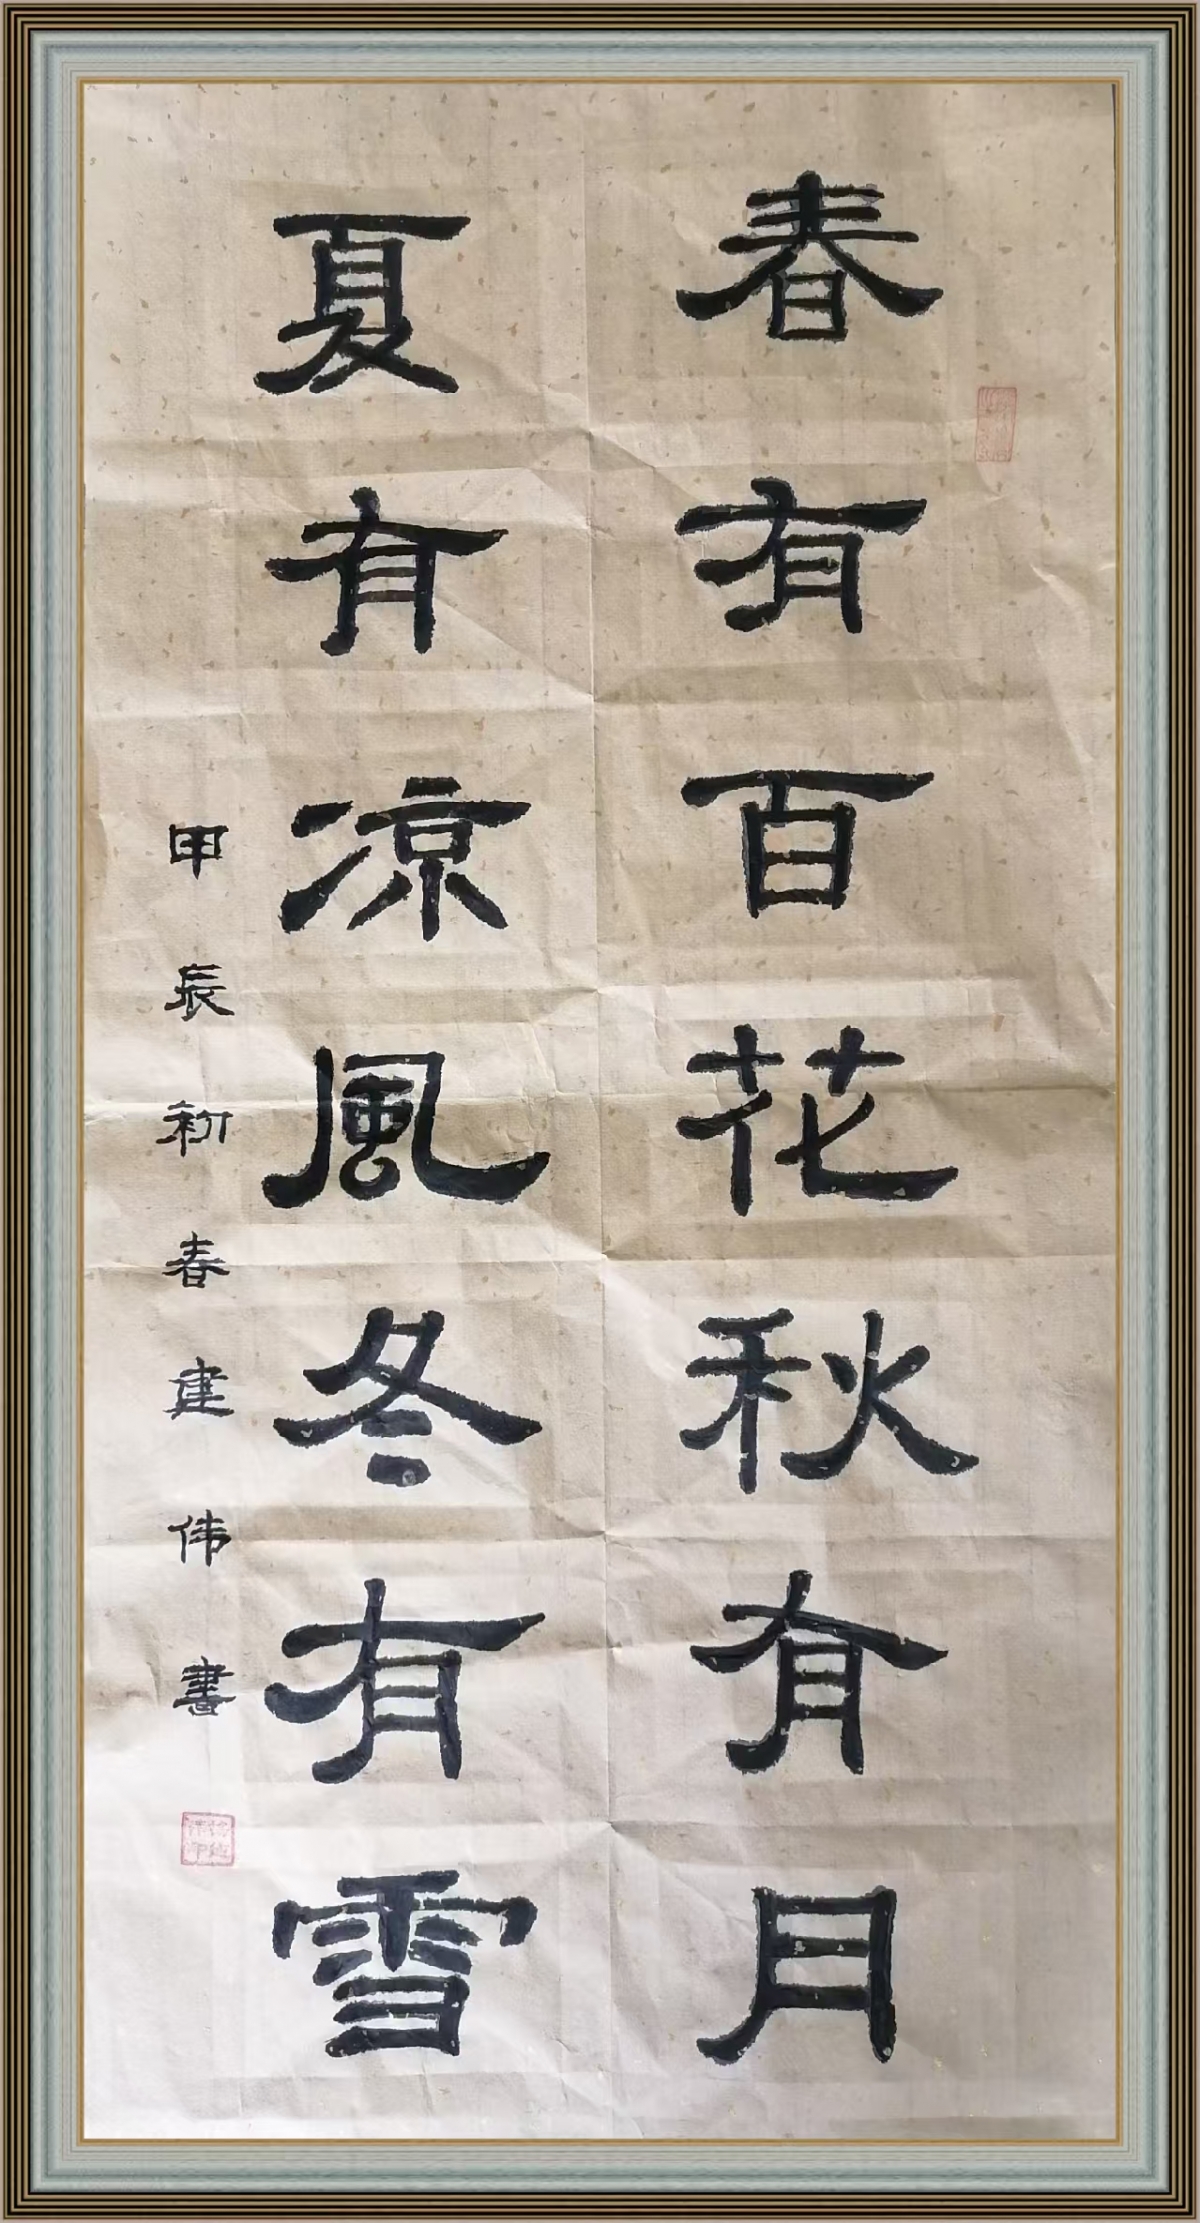 春有百花秋有月
夏有凉風冬有雪
甲辰初春建伟書